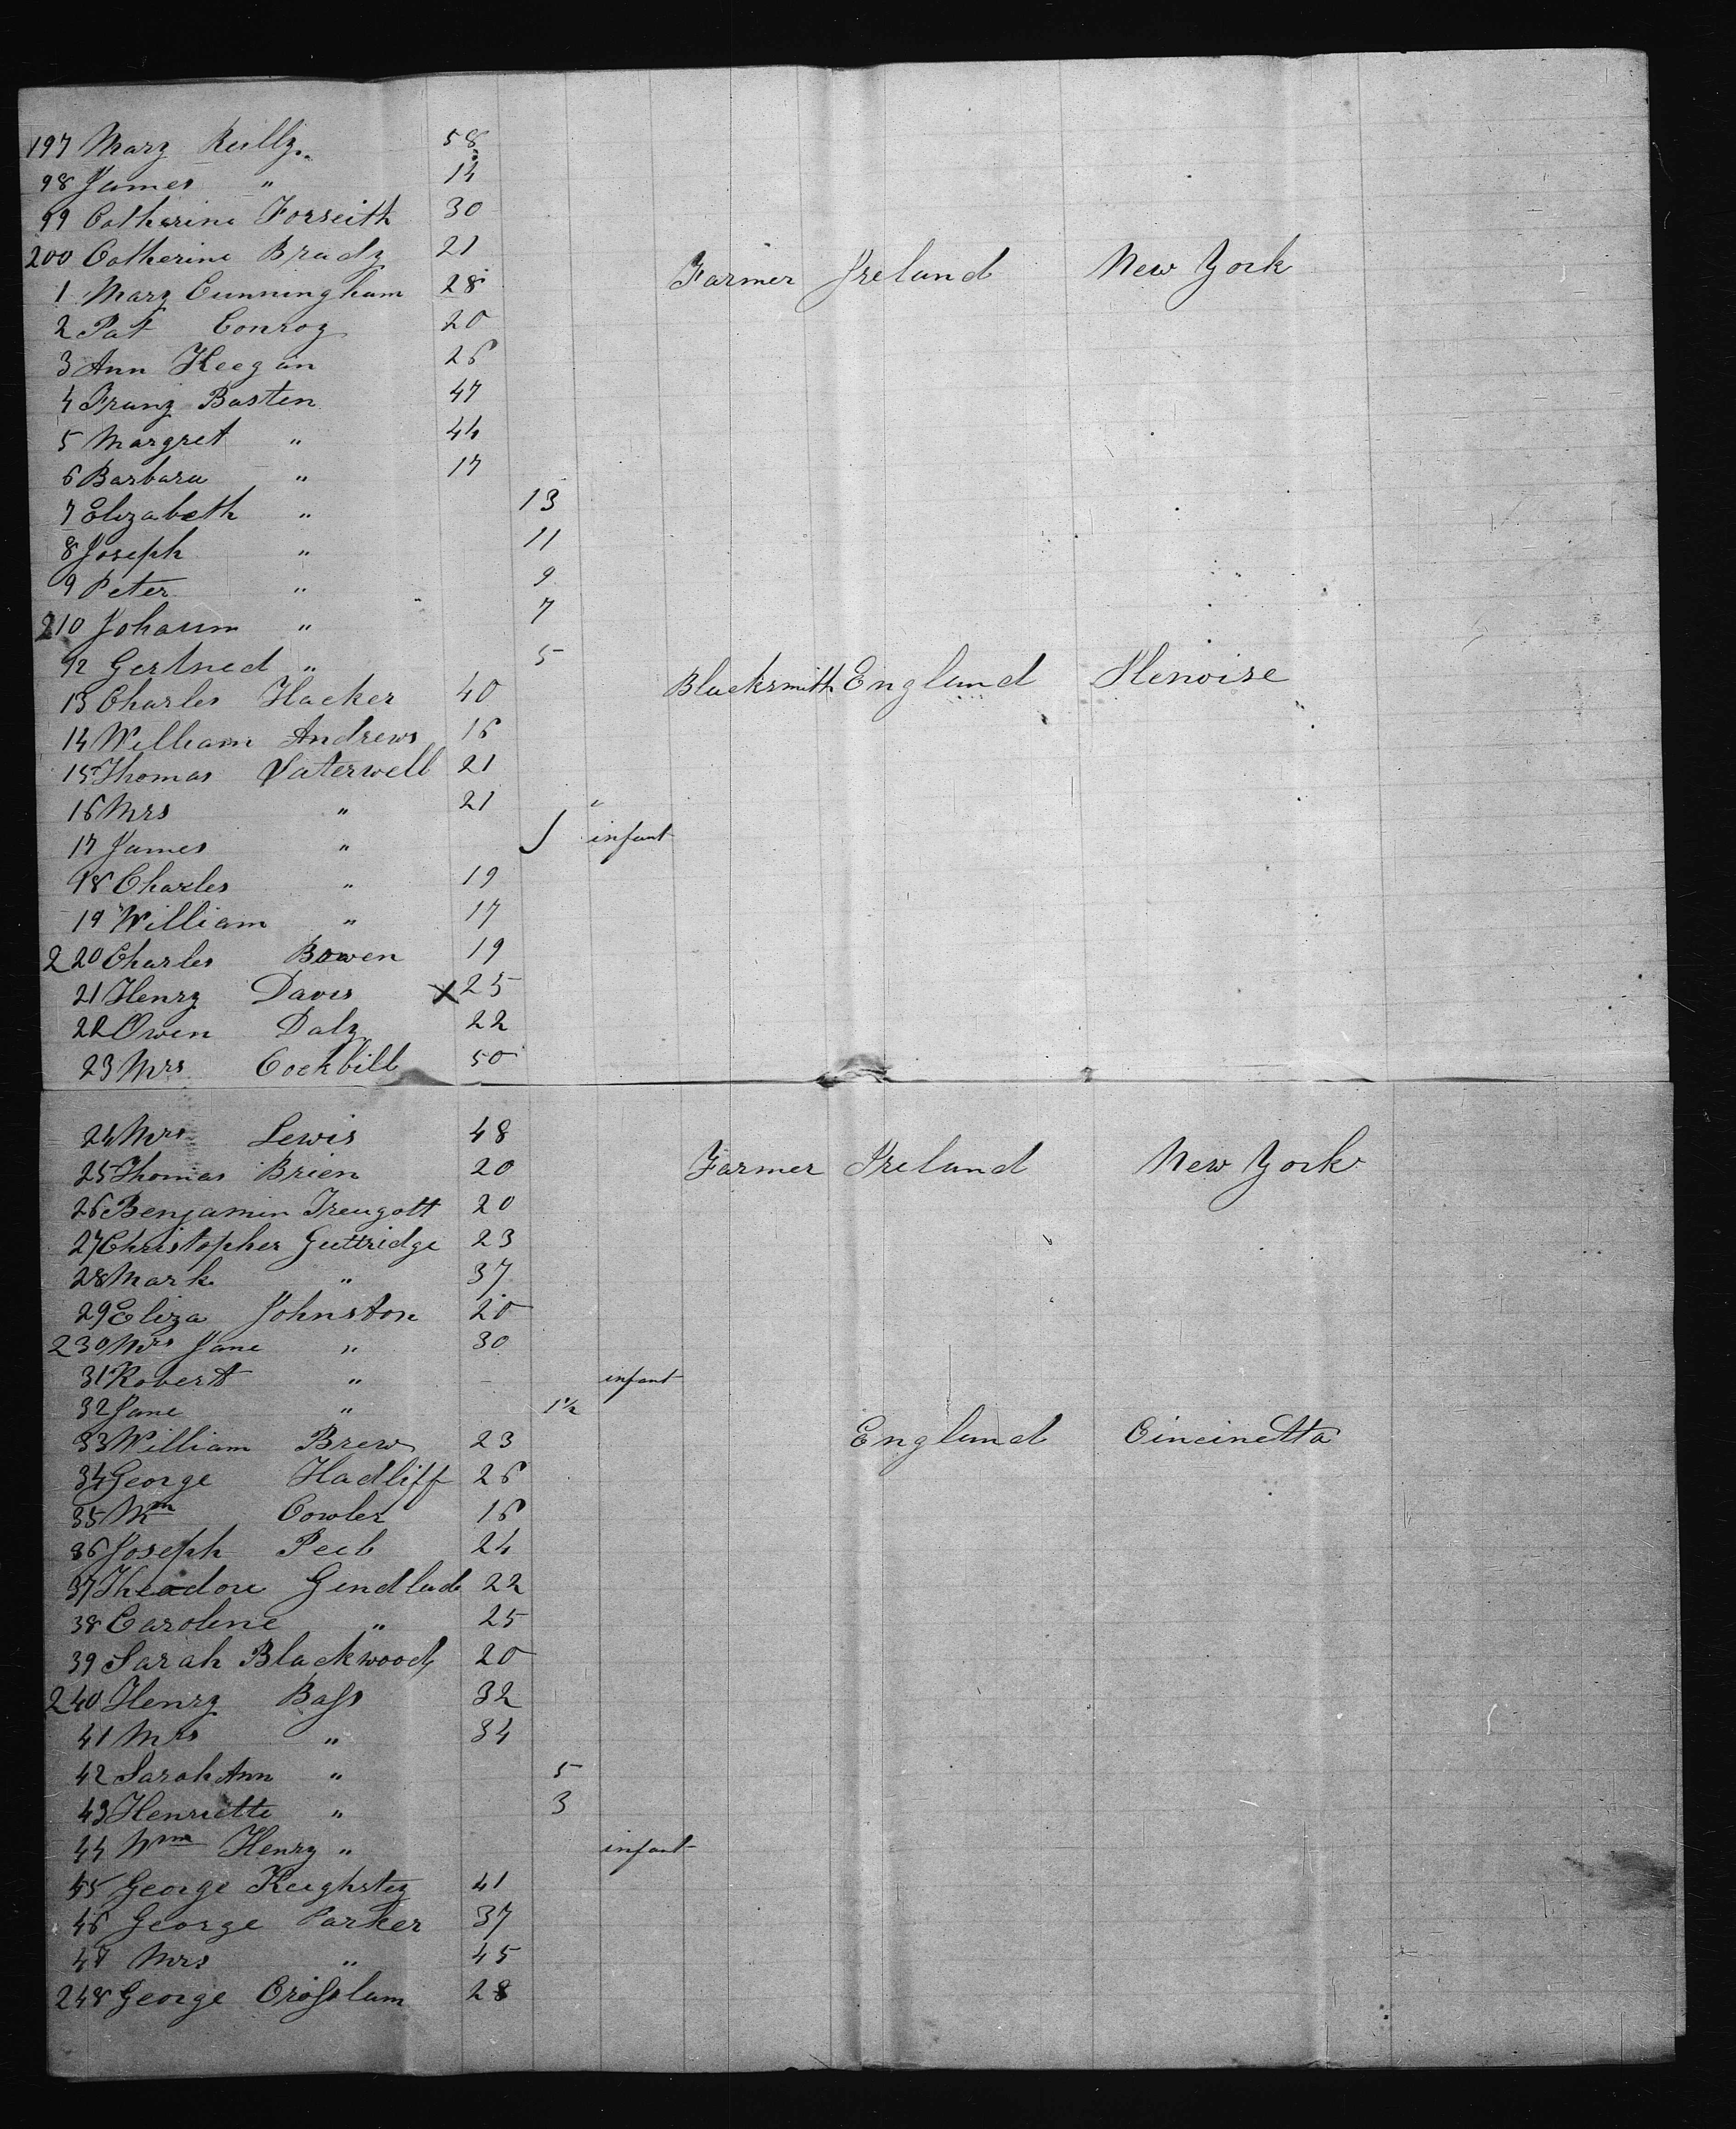 197 Mary Reilly. 58
98 James " 14
99 Catherine Forseith 30
200 Catherine Brady 21
1 Mary Cunningham 28 Farmer Ireland New York
2 Pat Conroy 20
3 Ann Keegan 26
4 Franz Basten 47
5 Margret " 44
6 Barbara " 17
7 Elizabeth " 13
8 Joseph " 11
9 Peter " 9
210 Johann " 7
12 Gertrud " 5
13 Charles Hacker 40 Blacksmith England Ilenoise
14 William Andrews 16
15 Thomas Saterwell 21
16 Mrs " 21 "
17 James " infant
18 Charles " 19
19 William " 17
220 Charles Bowen 19
21 Henry Davis X 25
22 Owen Daly 22
23 Mrs Cockbill 50
24 Mrs Lewis 48
25 Thomas Brien 20 Farmer Ireland New York
26 Benjamin Treugott 20
27 Christopher Guttridge 23
28 Mark " 37
29 Eliza Johnston 20
230 Mrs Jane " 30
31 Robert " infant
32 Jane " 1½
33 William Brew 23 England Cincinetta
34 George Hadliff 26
35 Wm Cowler 16
36 Joseph Peel 24
37 Theadore 22
38 Caroline " 25
39 Sarah Blackwood 20
240 Henry Bass 32
41 Mrs " 34
42 Sarah Ann " 5
43 Henriette " 3
44 Wm Henry " infant
45 George Keighstey 41
46 George Parker 37
47 Mrs " 45
248 George Crosslam 28